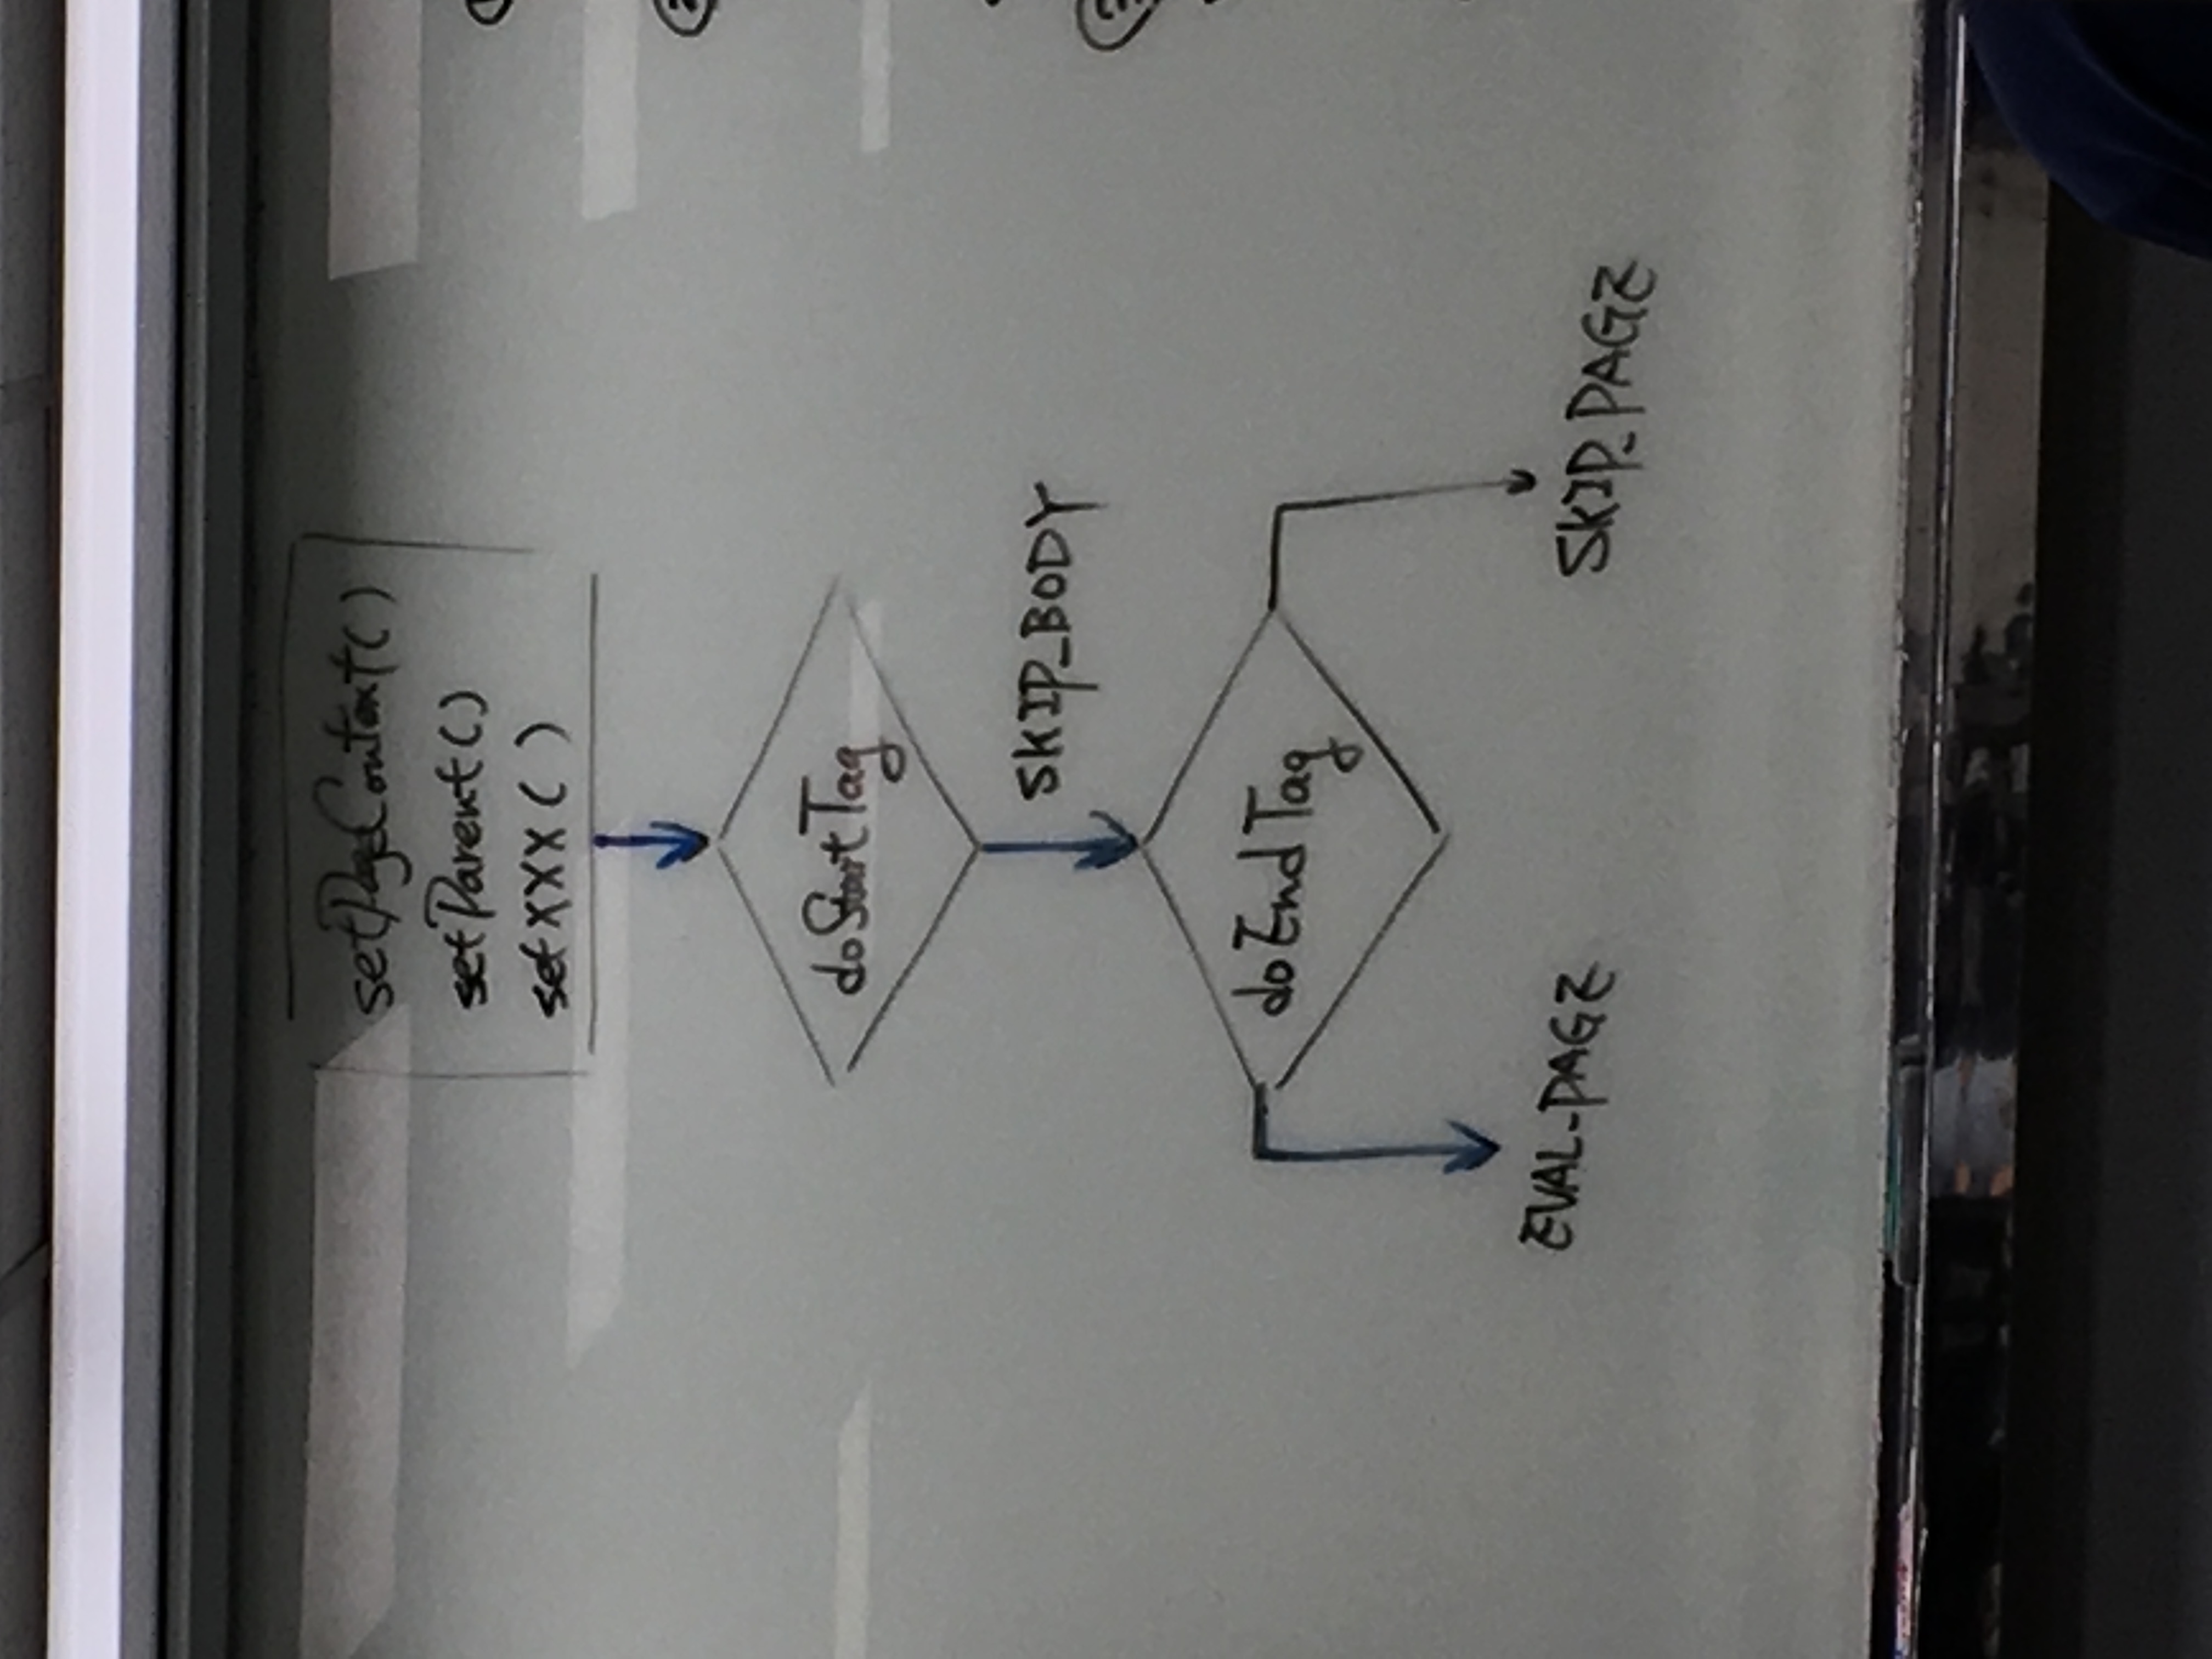 setPageContext()
setParent()
setXXX( )
doStartTag
SKIP_BODY
doEndTag
EVAL_PAGE
SKIP_PAGE